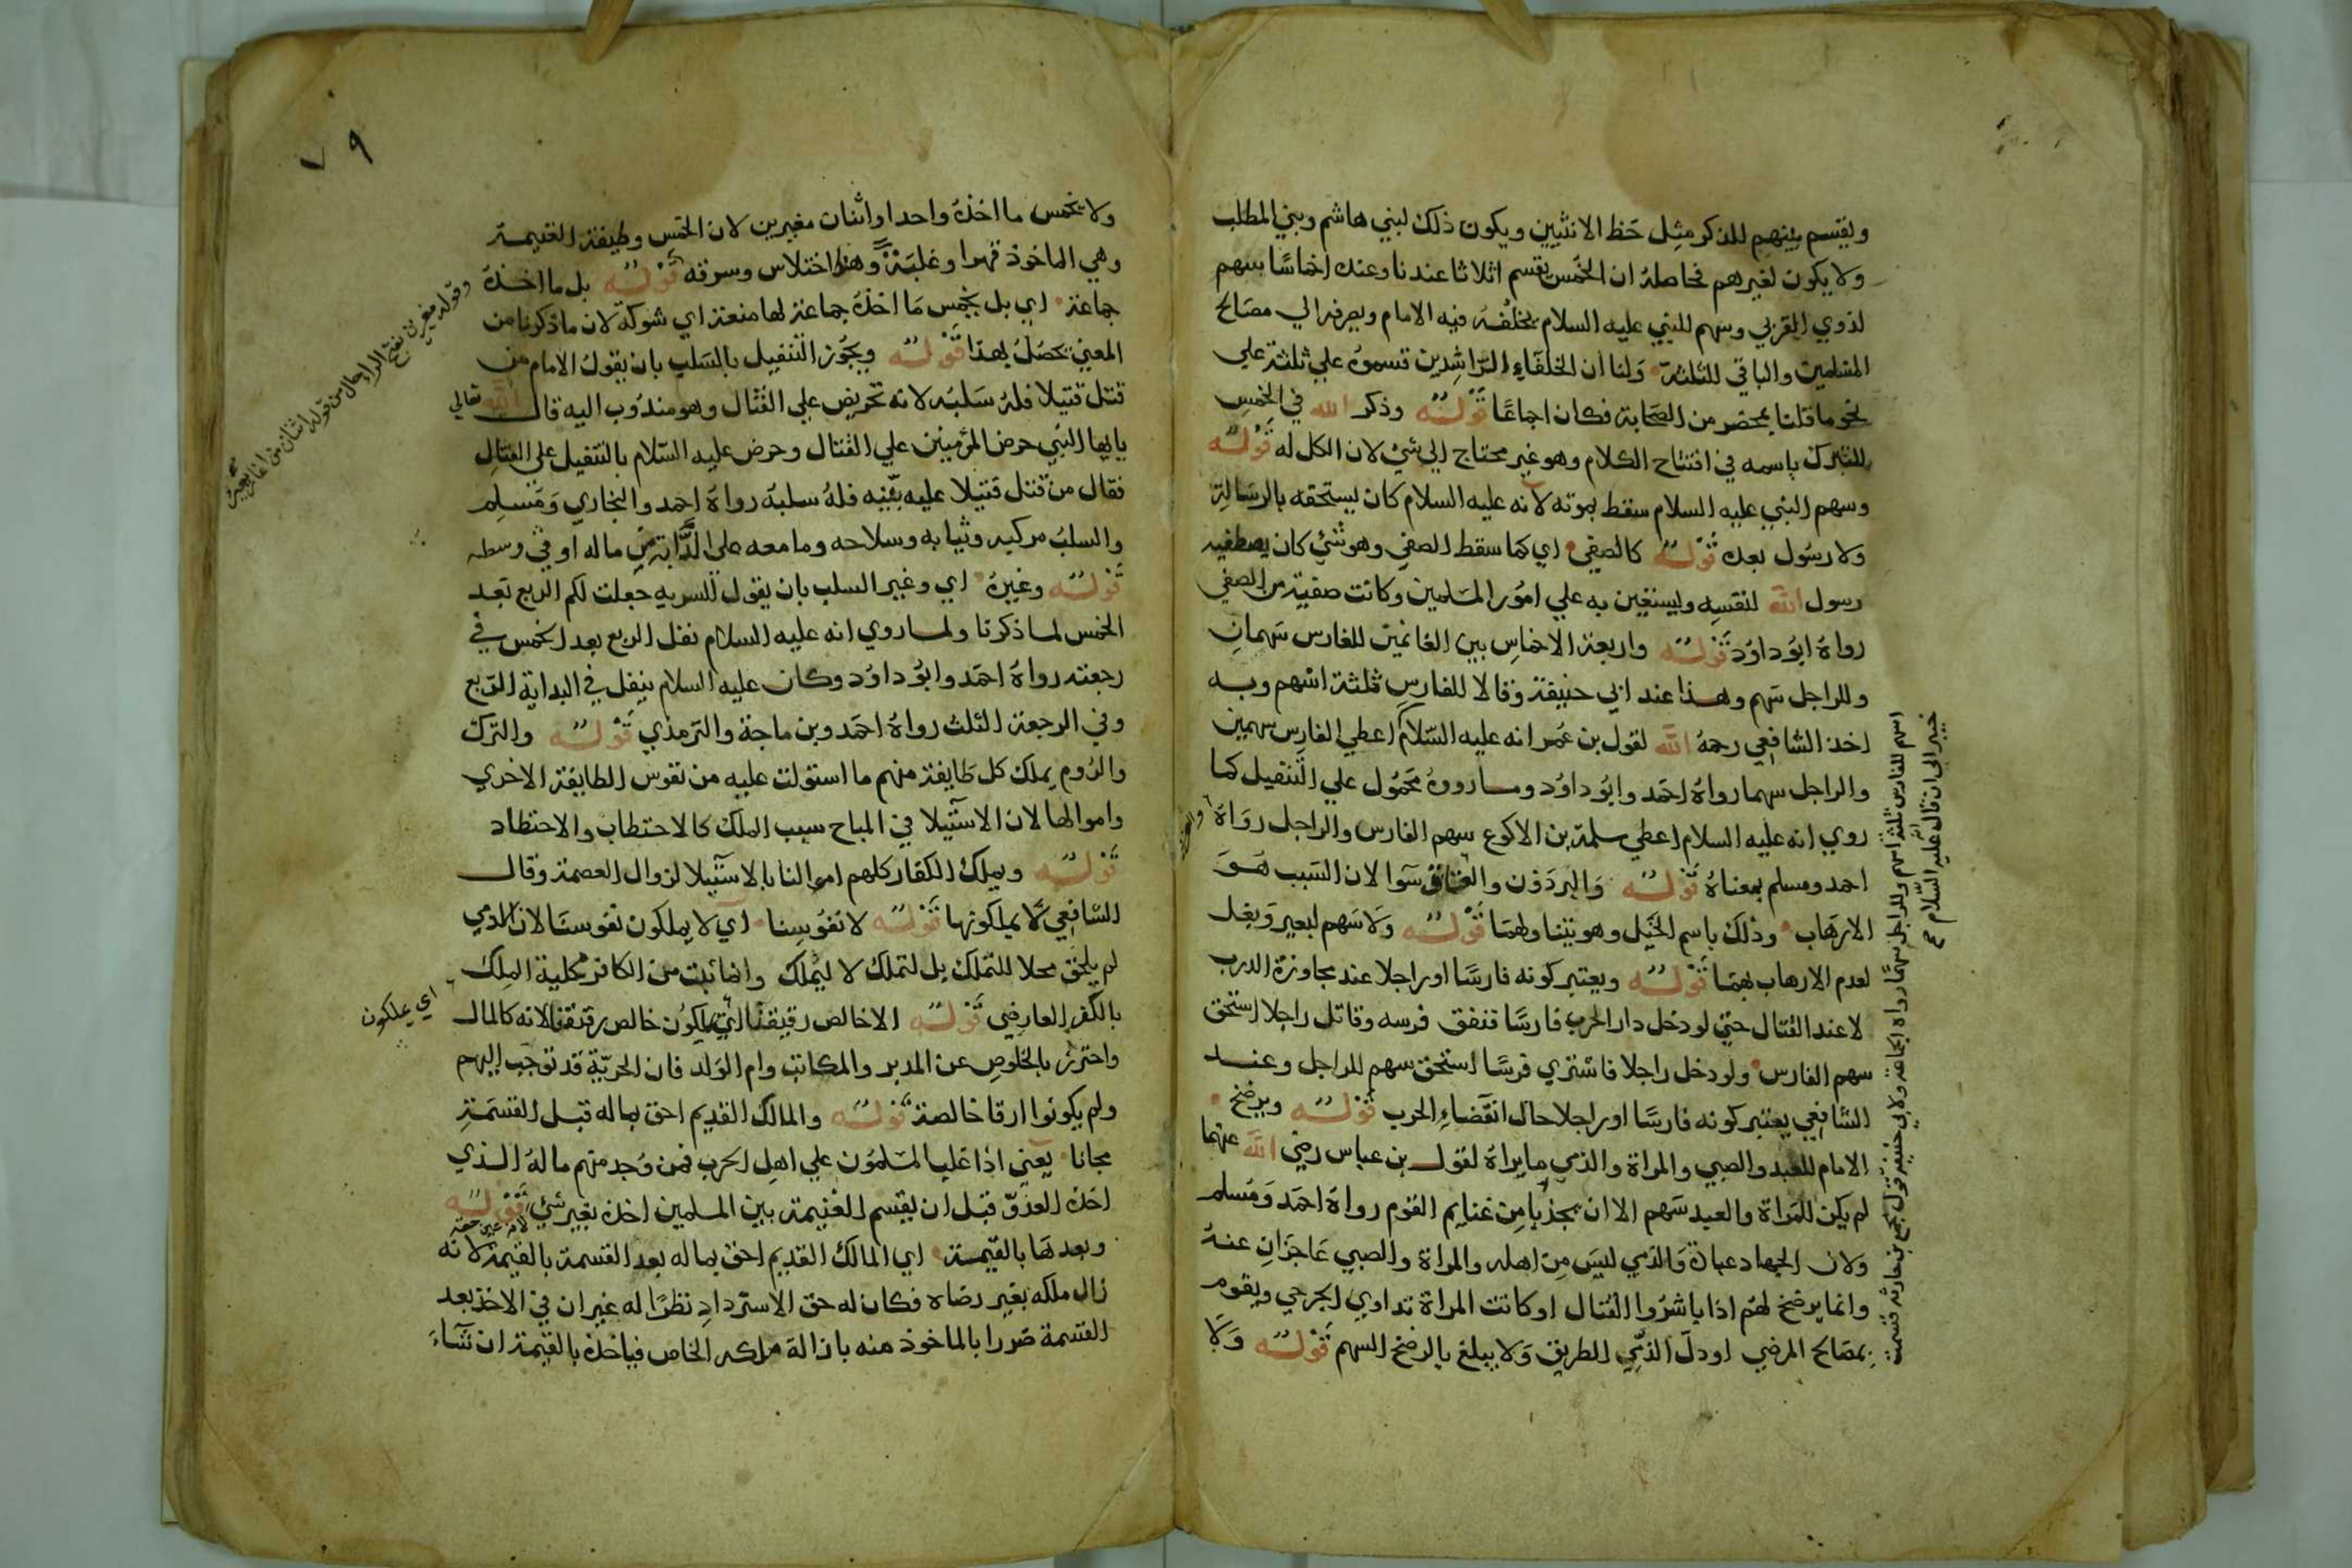 ويقسم بينهم للذكر مثل حظ الانثيين ويكون ذلك لبني هاشم وبني المطلب
ولا يكون لغيرهم فحاصله ان الخمس يقسم اثلاثا عندنا وعنده اخماسًا سهم
لذوي القربي وسهم للنبي عليه السلام يخلفه فيه الامام ويصرفه الي مصالح
المسلمين والباقي للثلثة ولنا ان الخلفاء الراشدين قسموه علي ثلثة علي
نحو ما قلنا بمحضر من الصحابة فكان اجماعًا قوله وذكر الله في الخمس
للتبرك باسمه في افتتاح الكلام وهو غير محتاج الي شئ لان الكل له قوله
وسهم النبي عليه السلام سقط بموته لانه عليه السلام كان يستحقه بالرسالة
ولا رسول بعده قوله كالصفي اي كما سقط الصفي وهو شئ كان يصطفيه
رسول الله لنفسه ويستعين به علي امور المسلمين وكانت صفية من الصفي
رواه ابو داود قوله واربعة الاخماس بين الغانمين للفارس سهمان
وللراجل سهم وهذا عند ابي حنيفة وقالا للفارس ثلثة اسهم وبه
اخذ الشافعي رحمه الله لقول بن عمر انه عليه السلام اعطي الفارس سهمين
والراجل سهما رواه احمد وابو داود وما رووه محمول علي التنفيل كما
روي انه عليه السلام اعطي سلمة بن الاكوع سهم الفارس والراجل رواه
احمد ومسلم بمعناه قوله والبرذون والعتاق سوا لان السبب هو
الارهاب وذلك باسم الخيل وهو يتناولهما قوله ولا سهم لبعير وبغل
لعدم الارهاب بهما قوله ويعتبر كونه فارسًا او راجلا عند مجاوزة الدرب
لا عند القتال حتي لو دخل دار الحرب فارسًا فنفق فرسه وقاتل راجلا استحق
سهم الفارس ولو دخل راجلا فاشتري فرسًا استحق سهم الراجل وعند
الشافعي يعتبر كونه فارسًا او راجلا حال انقضاء الحرب قوله ويرضخ
الامام للعبد والصبي والمراة والذمي ما يراه لقول بن عباس رضي الله عنهما
لم يكن للمراة والعبد سهم الا ان يجذيا من غنايم القوم رواه احمد ومسلم
ولان الجهاد عبادة والذمي ليس من اهله والمراة والصبي عاجزان عنه
وانما يرضخ لهم اذا باشروا القتال او كانت المراة تداوي الجرحي ويقوم
بمصالح المرضي او دل الذمي الطريق ولا يبلغ بالرضخ السهم قوله ولا
اسهم للفارس ثلثة اسهم وللراجل سهما رواه الجماعة ولابي حنيفة قول مجمع بن حارثة قسمت
خيبر الي ان قال عليه السلام
٧٩
ولا يخمس ما اخذه واحد او اثنان مغيرين لان الخمس وظيفة الغنيمة
وهي الماخوذ قهرا وغلبة وهذا اختلاس وسرقة قوله بل ما اخذه
جماعة اي بل يخمس ما اخذه جماعة لها منعة اي شوكة لان ما ذكرنا من
المعني يحصل بهذا قوله ويجوز التنفيل بالسلب بان يقول الامام من
قتل قتيلا فله سلبه لانه تحريض علي القتال وهو مندوب اليه قال الله تعالي
يايها النبي حرض المؤمنين علي القتال وحرض عليه السلام بالتنفيل علي القتال
فقال من قتل قتيلا عليه بينه فله سلبه رواه احمد والبخاري ومسلم
والسلب مركبه وثيابه وسلاحه وما معه علي الدابة من ماله او في وسطه
قوله وغيره اي وغير السلب بان يقول للسرية جعلت لكم الربع بعد
الخمس لما ذكرنا ولما روي انه عليه السلام نفل الربع بعد الخمس في
رجعته رواه احمد وابو داود وكان عليه السلام ينفل في البداية الربع
وفي الرجعة الثلث رواه احمد وبن ماجة والترمذي قوله والترك
والروم يملك كل طايفة منهم ما استولت عليه من نفوس الطايفة الاخري
واموالها لان الاستيلا في المباح سبب الملك كالاحتطاب والاحتطاد
قوله ويملك الكفار كلهم اموالنا بالاستيلا لزوال العصمة وقال
الشافعي لا يملكونها قوله لا نفوسنا اي لا يملكون نفوسنا لان الذمي
لم يلحق محلا للتملك بل لتملك لا ليملك وانما ثبت من الكافر محلية الملك
بالكفر العارضي قوله الا خالص رقيقنا اي يملكون خالص رقيقنا لانه كالمال
واحترز بالخلوص عن المدبر والمكاتب وام الولد فان الحرية قد توجب اليهم
ولم يكونوا ارقا خالصة قوله والمالك القديم احق بماله قبل القسمة
مجانا يعني اذا غلب المسلمون علي اهل الحرب فمن وجد منهم ماله الذي
اخذه العدو قبل ان يقسم الغنيمة بين المسلمين اخذه بغير شئ قوله
وبعدها بالقيمة اي المالك القديم احق بماله بعد القسمة بالقيمة لانه
زال ملكه بغير رضاه فكان له حق الاسترداد نظرًا له غير ان في الاخذ بعد
القسمة ضررا بالماخوذ منه بازالة ملكه الخاص فياخذه بالقيمة ان شاء
وقوله مغيرين بفتح الراء حال من قوله اثنان من اغار يغير
اي يملكون